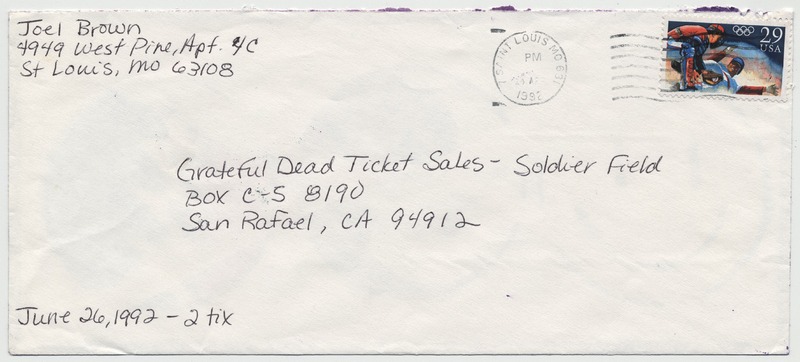 Joel Brown
4949 West Pine, Apt. 4C
St Louis, MO 63108
SAINT LOUIS MO 631
PM
1992
29
USA
Grateful Dead Ticket Sales - Soldier Field
BOX C-S 8190
San Rafael, CA 94912
June 26, 1992 - 2 tix